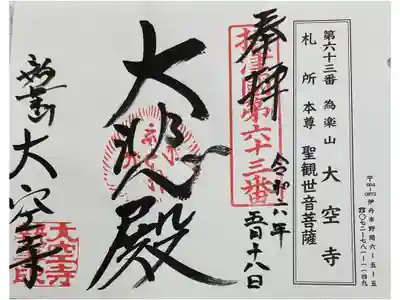 第六十三番 為楽山 大空寺
札所 本尊 聖観世音菩薩
伊丹市野間六-五-五
〇七二-七八一-一一四九
奉拝
摂津国第六十三番
令和六年
五月十八日
大悲殿
大空寺
大空寺